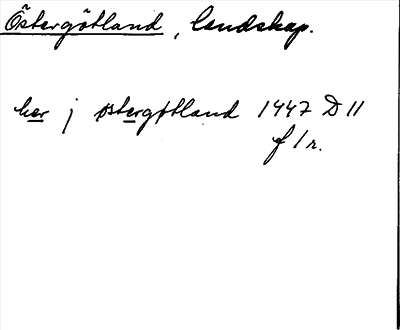 Östergötland, landskap.
her j østergøtland 1447 D 11
f 1r.